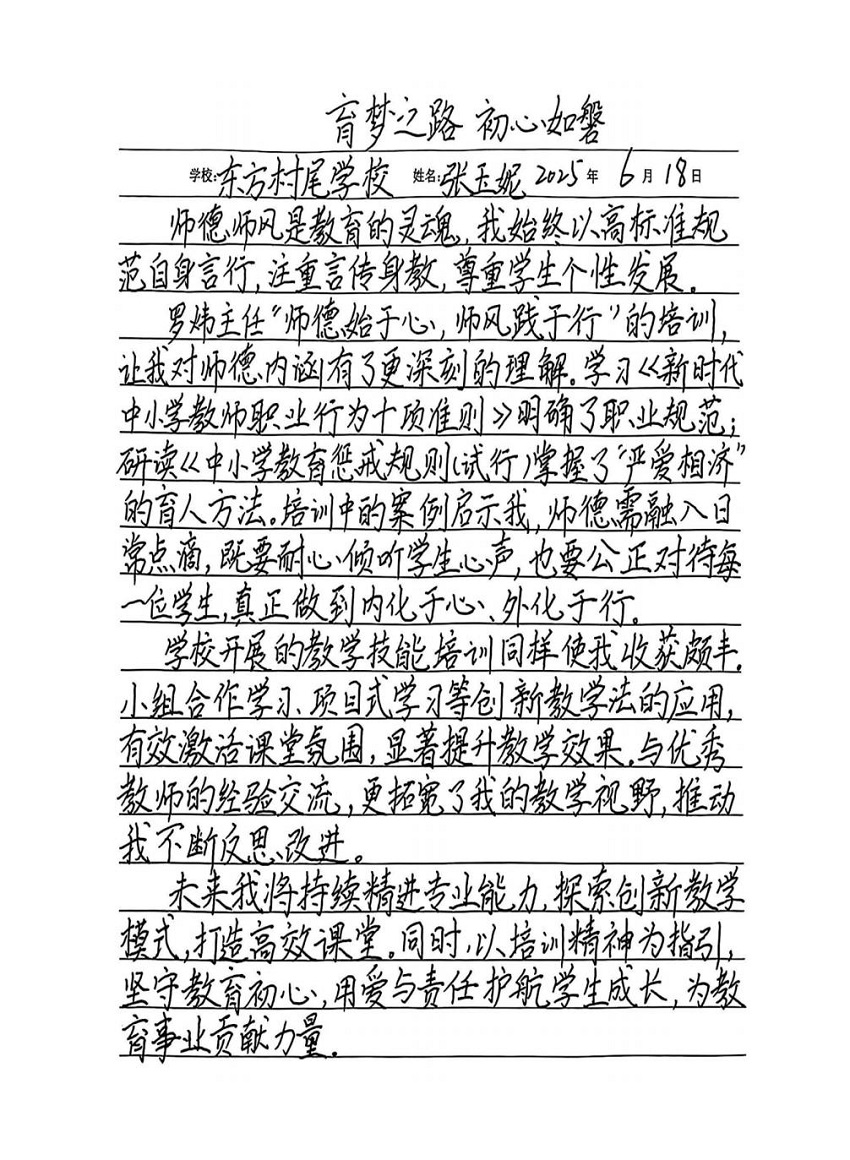 育梦之路 初心如磐
学校:东方村尾学校 姓名:张玉妮 2025年 6月18日
师德师风是教育的灵魂,我始终以高标准规
范自身言行,注重言传身教,尊重学生个性发展。
罗炜主任“师德始于心,师风践于行”的培训,
让我对师德内涵有了更深刻的理解。学习《新时代
中小学教师职业行为十项准则》明确了职业规范;
研读《中小学教育惩戒规则(试行)掌握了“严爱相济”
的育人方法。培训中的案例启示我,师德需融入日
常点滴,既要耐心倾听学生心声,也要公正对待每
一位学生,真正做到内化于心、外化于行。
学校开展的教学技能培训同样使我收获颇丰。
小组合作学习、项目式学习等创新教学法的应用,
有效激活课堂氛围,显著提升教学效果。与优秀
教师的经验交流,更拓宽了我的教学视野,推动
我不断反思改进。
未来我将持续精进专业能力,探索创新教学
模式,打造高效课堂。同时,以培训精神为指引,
坚守教育初心,用爱与责任护航学生成长,为教
育事业贡献力量。